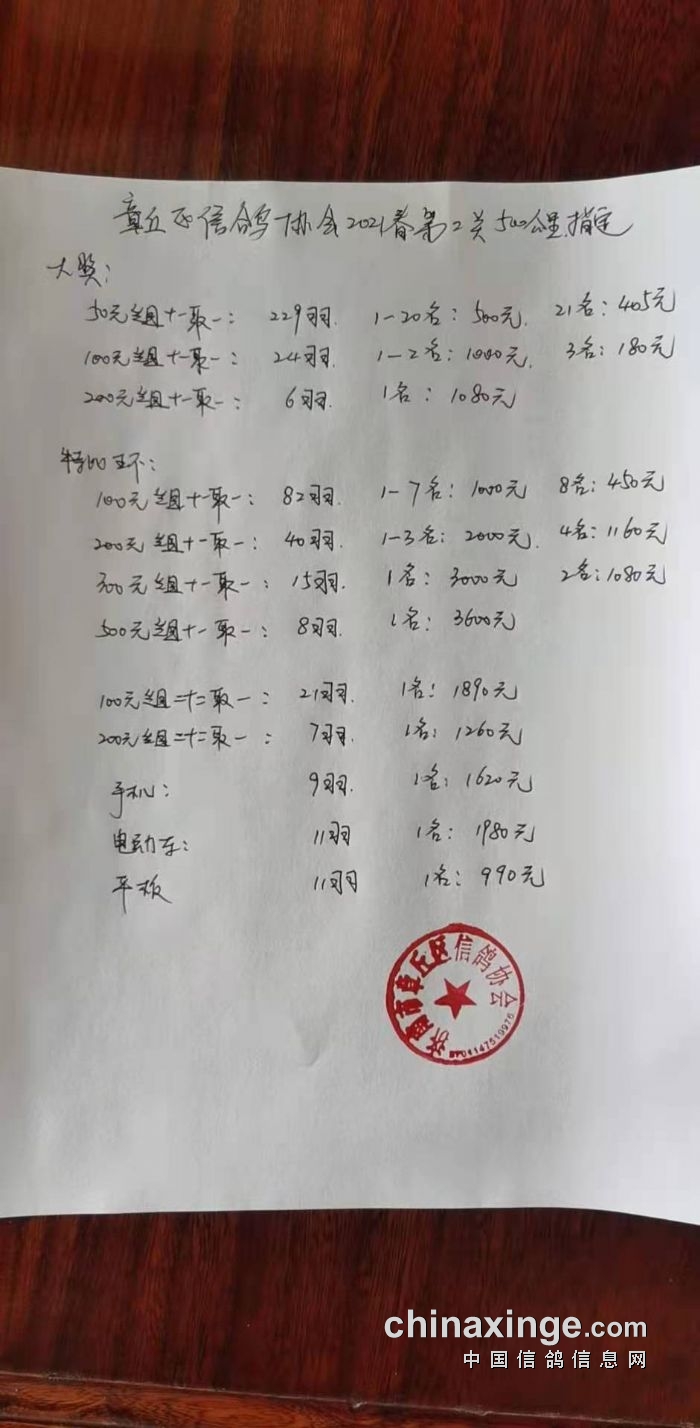 章丘区信鸽协会2021春第2关500公里指定
大奖:
50元组十一取一: 229羽. 1-20名: 500元. 21名: 405元
100元组十一取一: 24羽. 1-2名: 1000元. 3名: 180元
200元组十一取一: 6羽. 1名: 1080元
特比环:
100元组十一取一: 82羽. 1-7名: 1000元 8名: 450元
200元组十一取一: 40羽. 1-3名: 2000元. 4名: 1160元
300元组十一取一: 15羽. 1名: 3000元 2名: 1080元
500元组十一取一: 8羽. 1名: 3600元
100元组二十二取一: 21羽. 1名: 1890元
200元组二十二取一: 7羽. 1名: 1260元
手机: 9羽. 1名: 1620元
电动车: 11羽 1名: 1980元
平板 11羽 1名: 990元
济南市章丘区信鸽协会
chinaxinge.com
中国信鸽信息网